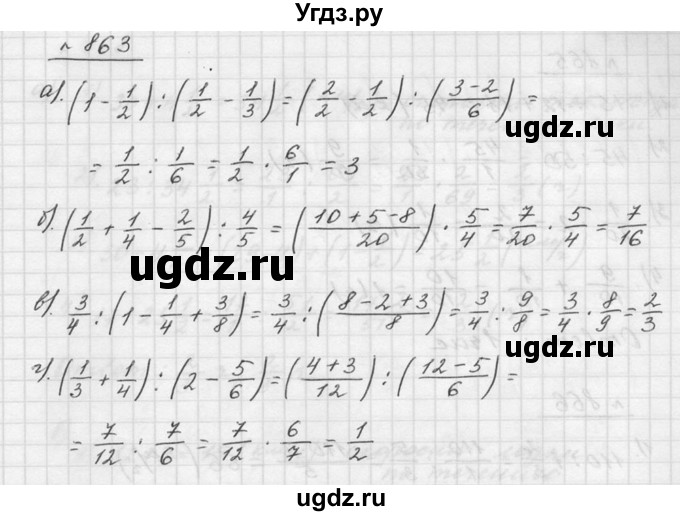 Угdz.ру
№ 863
а). (1 - 1/2) : (1/2 - 1/3) = (2/2 - 1/2) : ((3-2)/6) =
ugdz.ru
= 1/2 : 1/6 = 1/2 · 6/1 = 3
б). (1/2 + 1/4 - 2/5) : 4/5 = ((10+5-8)/20) · 5/4 = 7/20 · 5/4 = 7/16
ugdz.ru
в). 3/4 : (1 - 1/4 + 3/8) = 3/4 : ((8-2+3)/8) = 3/4 : 9/8 = 3/4 · 8/9 = 2/3
г). (1/3 + 1/4) : (2 - 5/6) = ((4+3)/12) : ((12-5)/6) =
= 7/12 : 7/6 = 7/12 · 6/7 = 1/2
ugdz.ru
ugdz.ru